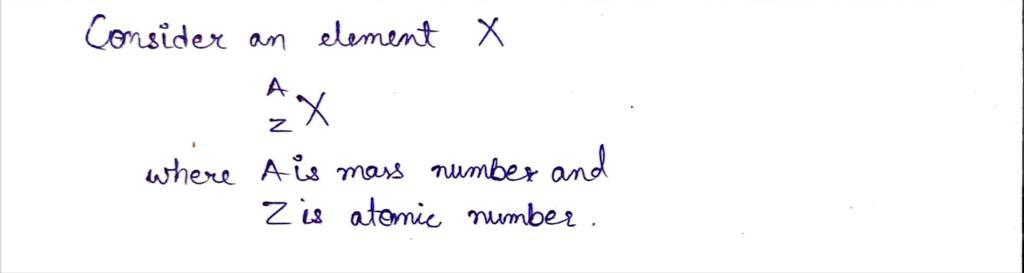 Consider an element X
A
X
Z
where A is mass number and
Z is atomic number.